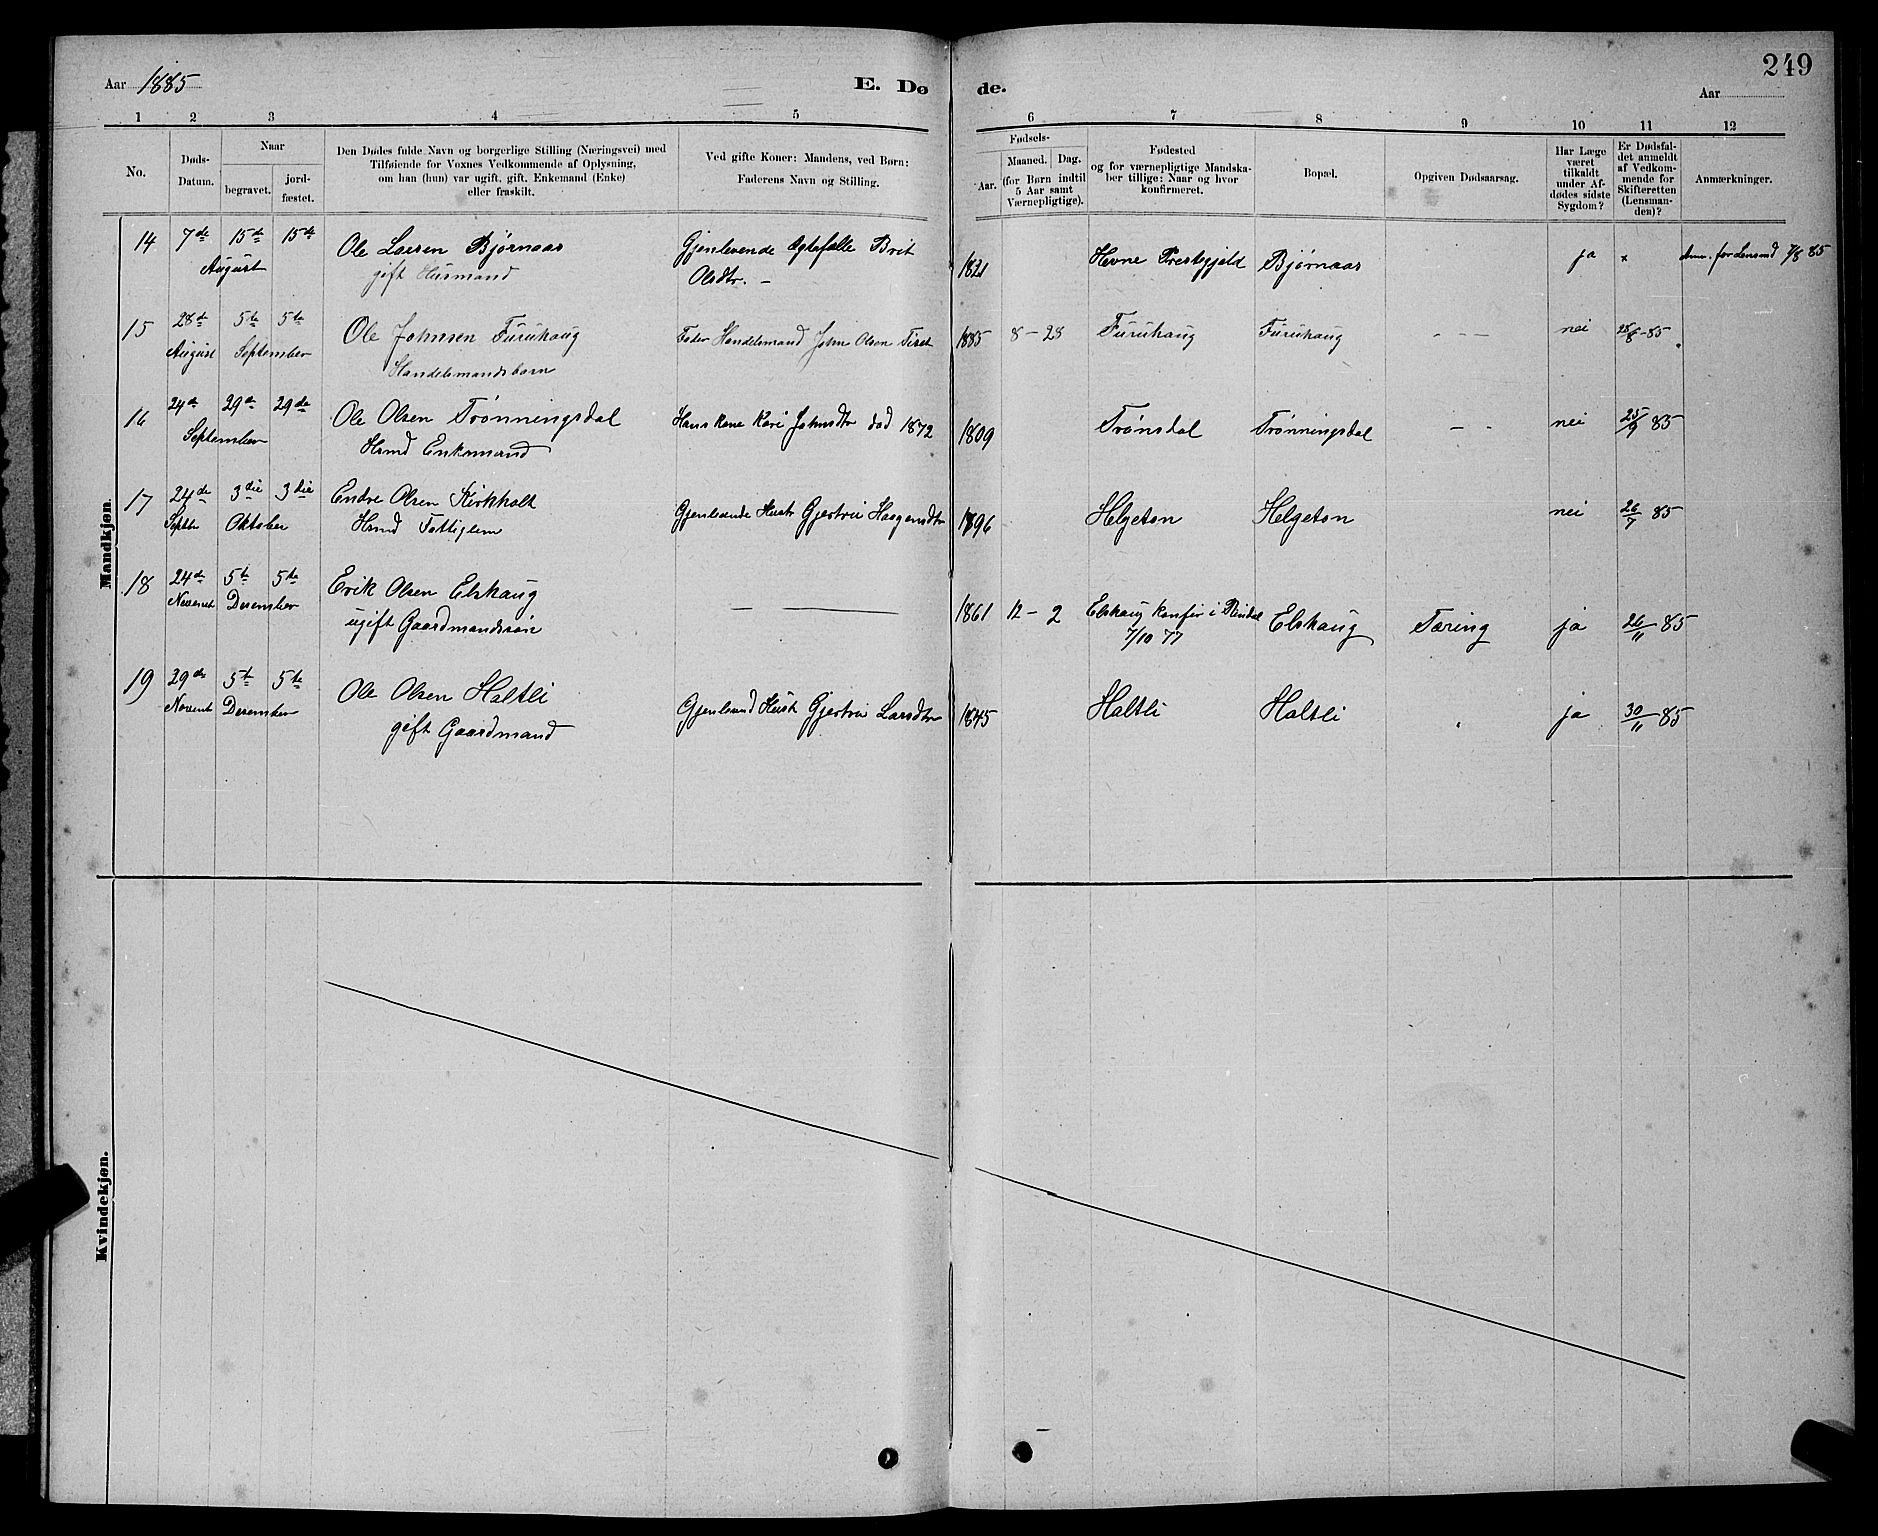 249
Aar 1885
E. Døde.
Aar
1 2 3 4 5 6 7 8 9 10 11 12
No.
Døds-
Datum.
Naar
begravet.
jord-
fæstet.
Den Dødes fulde Navn og borgerlige Stilling (Næringsvei) med
Tilføiende for Voxnes Vedkommende af Oplysning,
om han (hun) var ugift, gift, Enkemand (Enke)
eller fraskilt.
Ved gifte Koner: Mandens, ved Børn:
Faderens Navn og Stilling.
Fødsels-
Aar.
Maaned. Dag.
(for Børn indtil
5 Aar samt
Værnepligtige).
Fødested
og for værnepligtige Mandska-
ber tillige: Naar og hvor
konfirmeret.
Bopæl.
Opgiven Dødsaarsag.
Har Læge
været
tilkaldt
under Af-
dødes sidste
Sygdom?
Er Dødsfal-
det anmeldt
af Vedkom-
mende for
Skifteretten
(Lensman-
den)?
Anmærkninger.
Mandkjøn.
14 7de 15de 15de Ole Larsen Bjørnaas Gjenlevende Ægtefælle Brit 1821 Hevne Prestegjeld Bjørnaas ja x Anm. for Lensmd 7/8 85
August gift Husmand Olsdtr. –
15 28de 5te 5te Ole Johnsen Furuhaug Fader Handelsmand John Olsen 1885 8 – 28 Furuhaug Furuhaug - - - nei 28/8-85
August September Handelsmandsbarn
16 24de 29de 29de Ole Olsen Trønningsdal Hans Kone Kari Johnsdtr død 1872 1809 Trønsdal Trønningsdal – - nei 25/9 85
September Hsmd Enkemand
17 24de 3die 3die Endre Olsen Kirkholt Gjenlevende Hustr Gjertru Haagensdtr 1896 Helgeton Helgeton nei 26/7 85
Septbr Oktober Hsmd Fattiglem
18 24de 5te 5te Erik Olsen Elshaug — —— 1861 12 – 2 Elshaug konfir i Rindal Elshaug Tæring ja 26/11 85
Novemb Desember ugift Gaardmandssøn 7/10 77
19 29de 5te 5te Ole Olsen Haltli Gjenlevend Hustr Gjertru Larsdtr 1845 Haltli Haltli ja 30/11 85
Novemb Desember gift Gaardmand
Kvindekjøn.